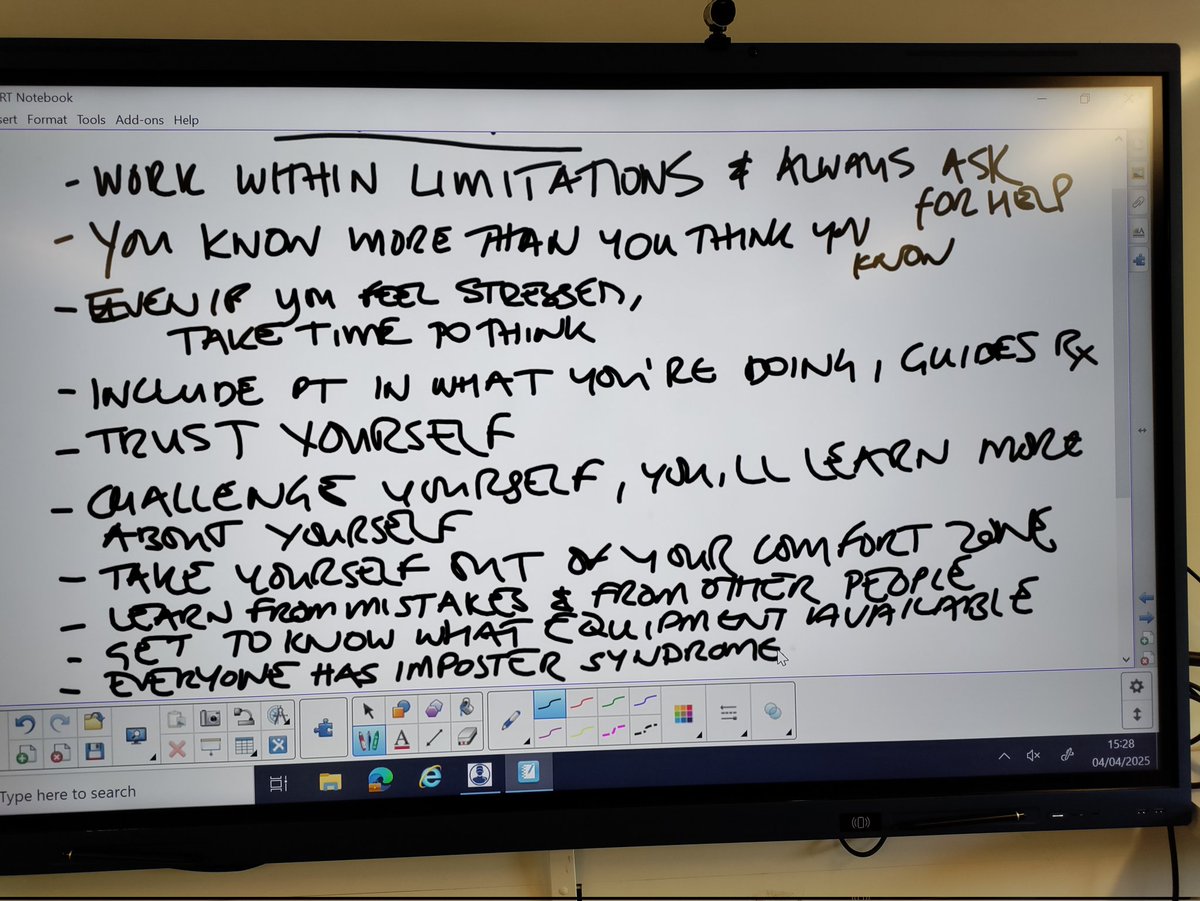 RT Notebook
sert Format Tools Add-ons Help
- WORK WITHIN LIMITATIONS & ALWAYS ASK
FOR HELP
- YOU KNOW MORE THAN YOU THINK YOU
KNOW
- EVEN IF YOU FEEL STRESSED,
TAKE TIME TO THINK
- INCLUDE PT IN WHAT YOU'RE DOING, GUIDES Rx
- TRUST YOURSELF
- CHALLENGE YOURSELF, YOU'LL LEARN MORE
ABOUT YOURSELF
- TAKE YOURSELF OUT OF YOUR COMFORT ZONE
- LEARN FROM MISTAKES & FROM OTHER PEOPLE
- GET TO KNOW WHAT EQUIPMENT AVAILABLE
- EVERYONE HAS IMPOSTER SYNDROME
Type here to search
15:28
04/04/2025